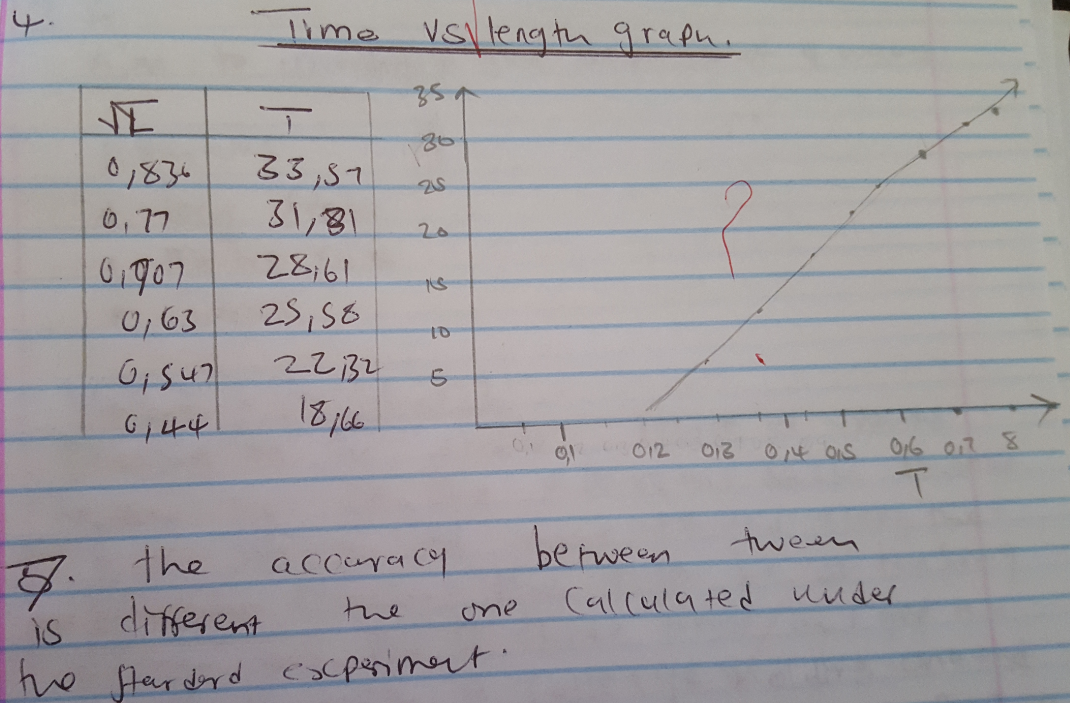 4.
Time vs length graph.
√L T
0,836 33,57
0,77 31,81
0,707 28,61
0,63 25,58
0,547 22,32
0,44 18,66
35
30
25
20
15
10
5
?
0,1 0,1 0,2 0,3 0,4 0,5 0,6 0,7 8
T
5. the accuracy between tween
is different the one calculated under
the standard experiment.